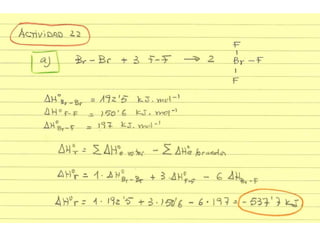 ACTIVIDAD 22
a) Br - Br + 3 F-F → 2 Br - F
F
F
ΔHº Br-Br = 192'5 kJ. mol⁻¹
ΔHº F-F = 150'6 kJ. mol⁻¹
ΔHº Br-F = 197 kJ. mol⁻¹
ΔHºr = Σ ΔHºe rotos - Σ ΔHºe formados
ΔHºr = 1. ΔHº Br-Br + 3 ΔHº F-F - 6 ΔHº Br-F
ΔHºr = 1. 192'5 + 3. 150'6 - 6. 197 = - 537'7 kJ